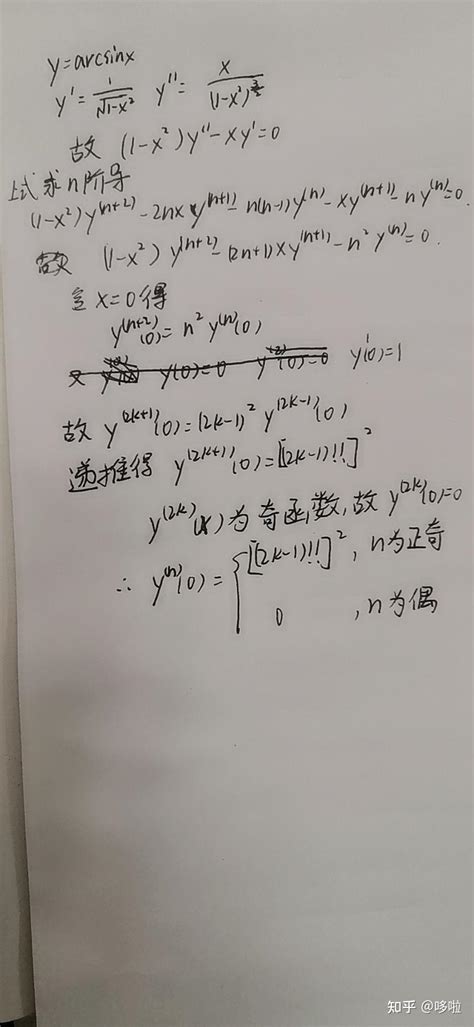 y=arcsinx
y'=1/√(1-x²) y''=x/(1-x²)^(3/2)
故 (1-x²)y''-xy'=0
上式求n阶导
(1-x²)y^(n+2)-2nx y^(n+1)-n(n-1)y^(n)-xy^(n+1)-ny^(n)=0.
故 (1-x²)y^(n+2)-(2n+1)xy^(n+1)-n²y^(n)=0.
令x=0得
y^(n+2)(0)=n²y^(n)(0)
又 y(0)=0 y^(2)(0)=0 y'(0)=1
故 y^(2k+1)(0)=(2k-1)²y^(2k-1)(0)
递推得 y^(2k+1)(0)=[(2k-1)!!]²
y^(2k)(x)为奇函数,故y^(2k)(0)=0
∴ y^(n)(0)={[(2k-1)!!]², n为正奇
0 , n为偶
知乎 @哆啦